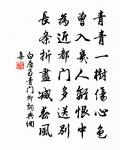 青青一樹傷心色
曾入幾人離恨中
為近都門多送別
長條折盡減春風
白居易青門柳詞典網
集